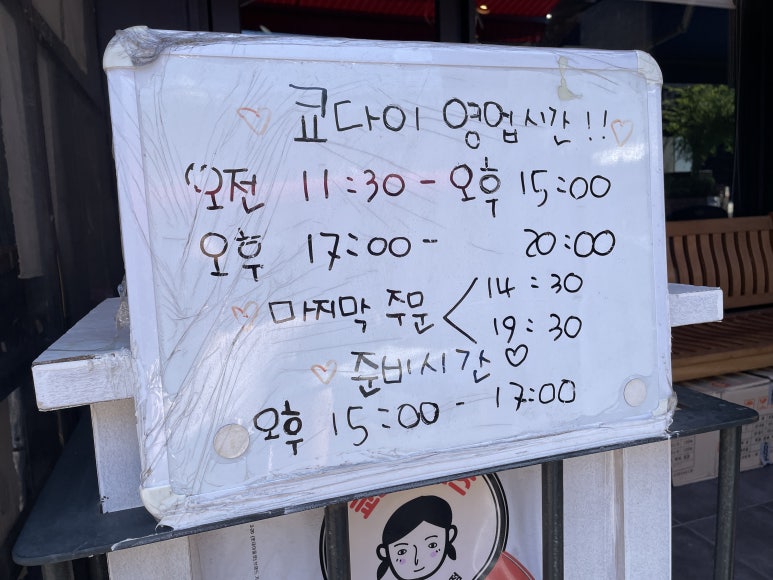 ♡ 쿄다이 영업시간!! ♡
오전 11:30 - 오후 15:00
오후 17:00 - 20:00
♡ 마지막 주문 < 14:30
19:30
♡ 준비시간 ♡
오후 15:00 - 17:00